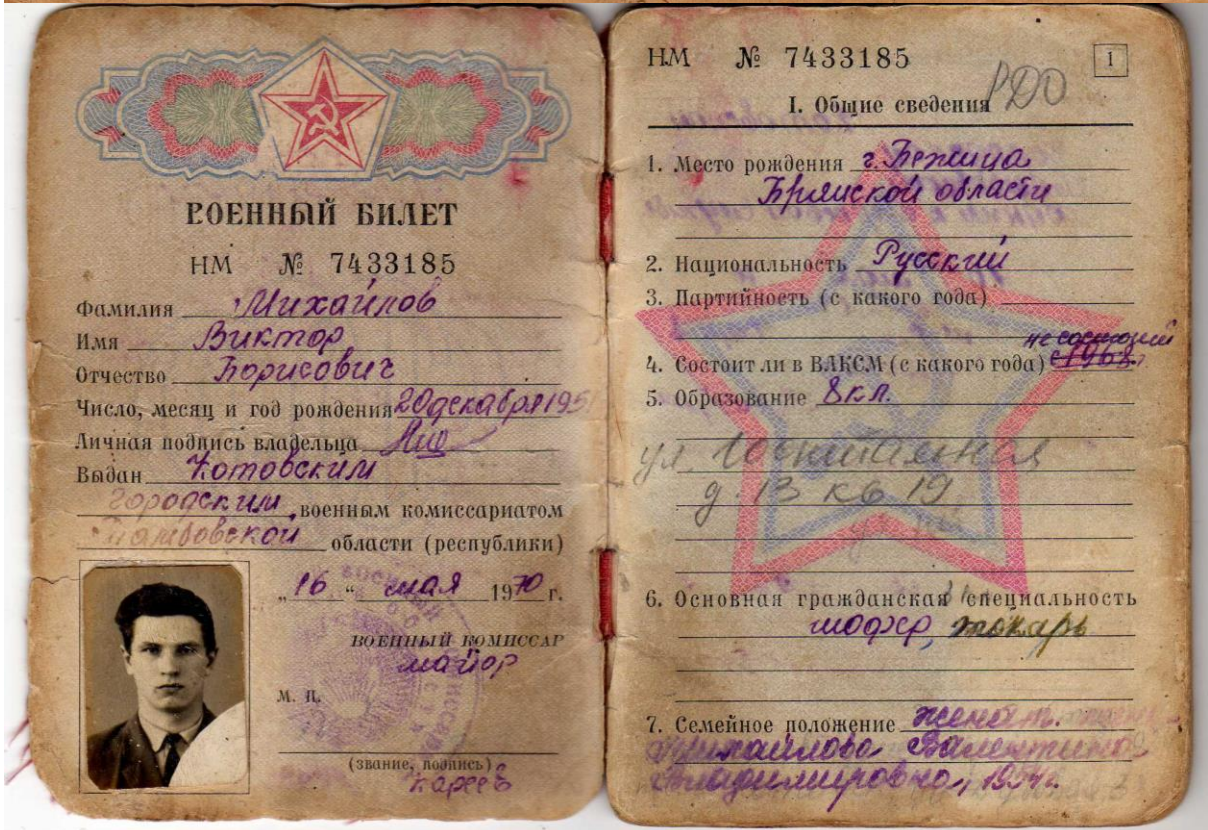 ВОЕННЫЙ БИЛЕТ
НМ № 7433185
Фамилия Михайлов
Имя Виктор
Отчество Борисович
Число, месяц и год рождения 20 декабря 195
Личная подпись владельца
Выдан Котовским
городским военным комиссариатом
Тамбовской области (республики)
„16“ мая 1970 г.
ВОЕННЫЙ КОМИССАР
майор
М. П.
(звание, подпись)
Кареев
НМ № 7433185
1
РДО
I. Общие сведения
1. Место рождения г. Бежица
Брянской области
2. Национальность Русский
3. Партийность (с какого года)
не состоящий
4. Состоит ли в ВЛКСМ (с какого года) с 1968
5. Образование 8 кл.
ул. Госпитальная
д. 13 кв 19
6. Основная гражданская специальность
шофер, токарь
7. Семейное положение женат.
Михайлова Валентина
Владимировна, 1954г.